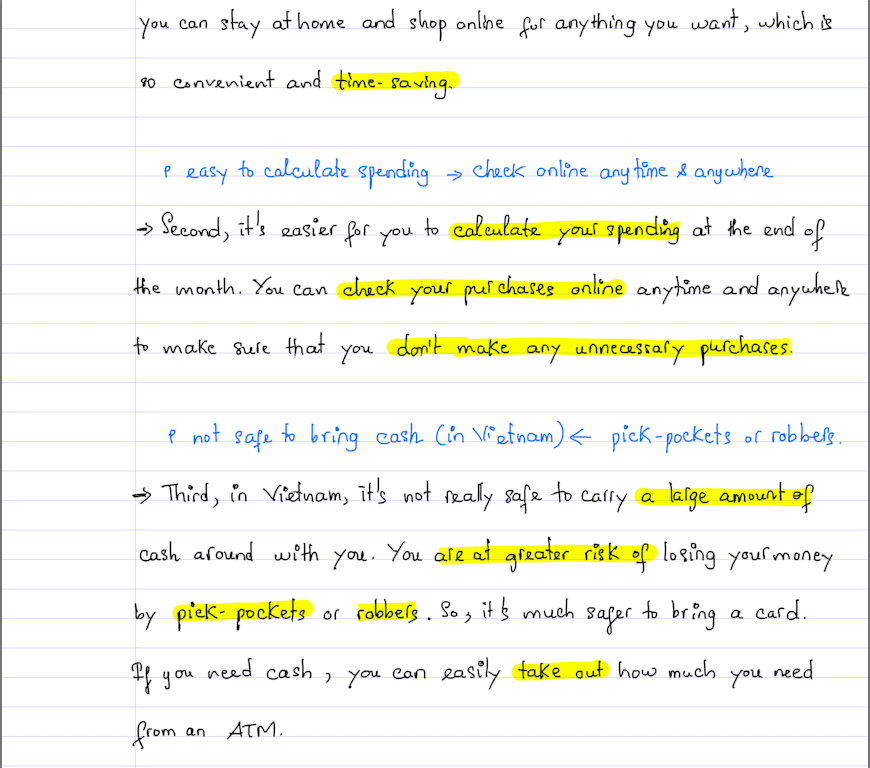 you can stay at home and shop online for anything you want, which is
so convenient and time-saving.
easy to calculate spending → check online anytime & anywhere
→ Second, it's easier for you to calculate your spending at the end of
the month. You can check your purchases online anytime and anywhere
to make sure that you don't make any unnecessary purchases.
not safe to bring cash (in Vietnam) ← pick-pockets or robbers.
→ Third, in Vietnam, it's not really safe to carry a large amount of
cash around with you. You are at greater risk of losing your money
by pick-pockets or robbers. So, it's much safer to bring a card.
If you need cash, you can easily take out how much you need
from an ATM.